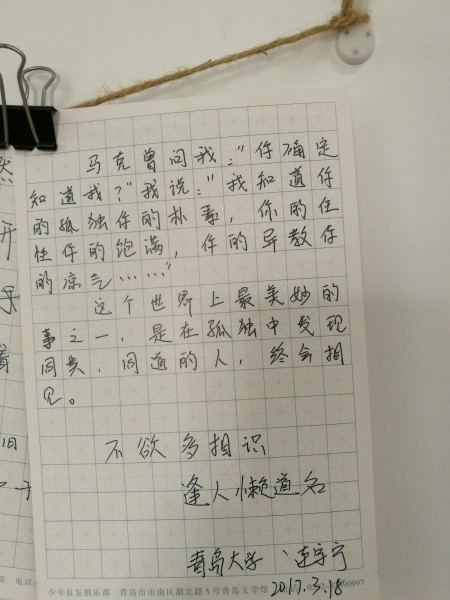 马克曾问我:"你确定
知道我?"我说:"我知道你
的孤独你的朴素,你的任
性你的饱满,你的异教你
的凉气……"
这个世界上最美妙的
事之一,是在孤独中发现
同类,同道的人,终会相
见。
不欲多相识
逢人懒道名
青岛大学 连宇宁
2017.3.18
少年良友俱乐部 青岛市市南区湖北路5号青岛文学馆
然
开
乐
着
旧